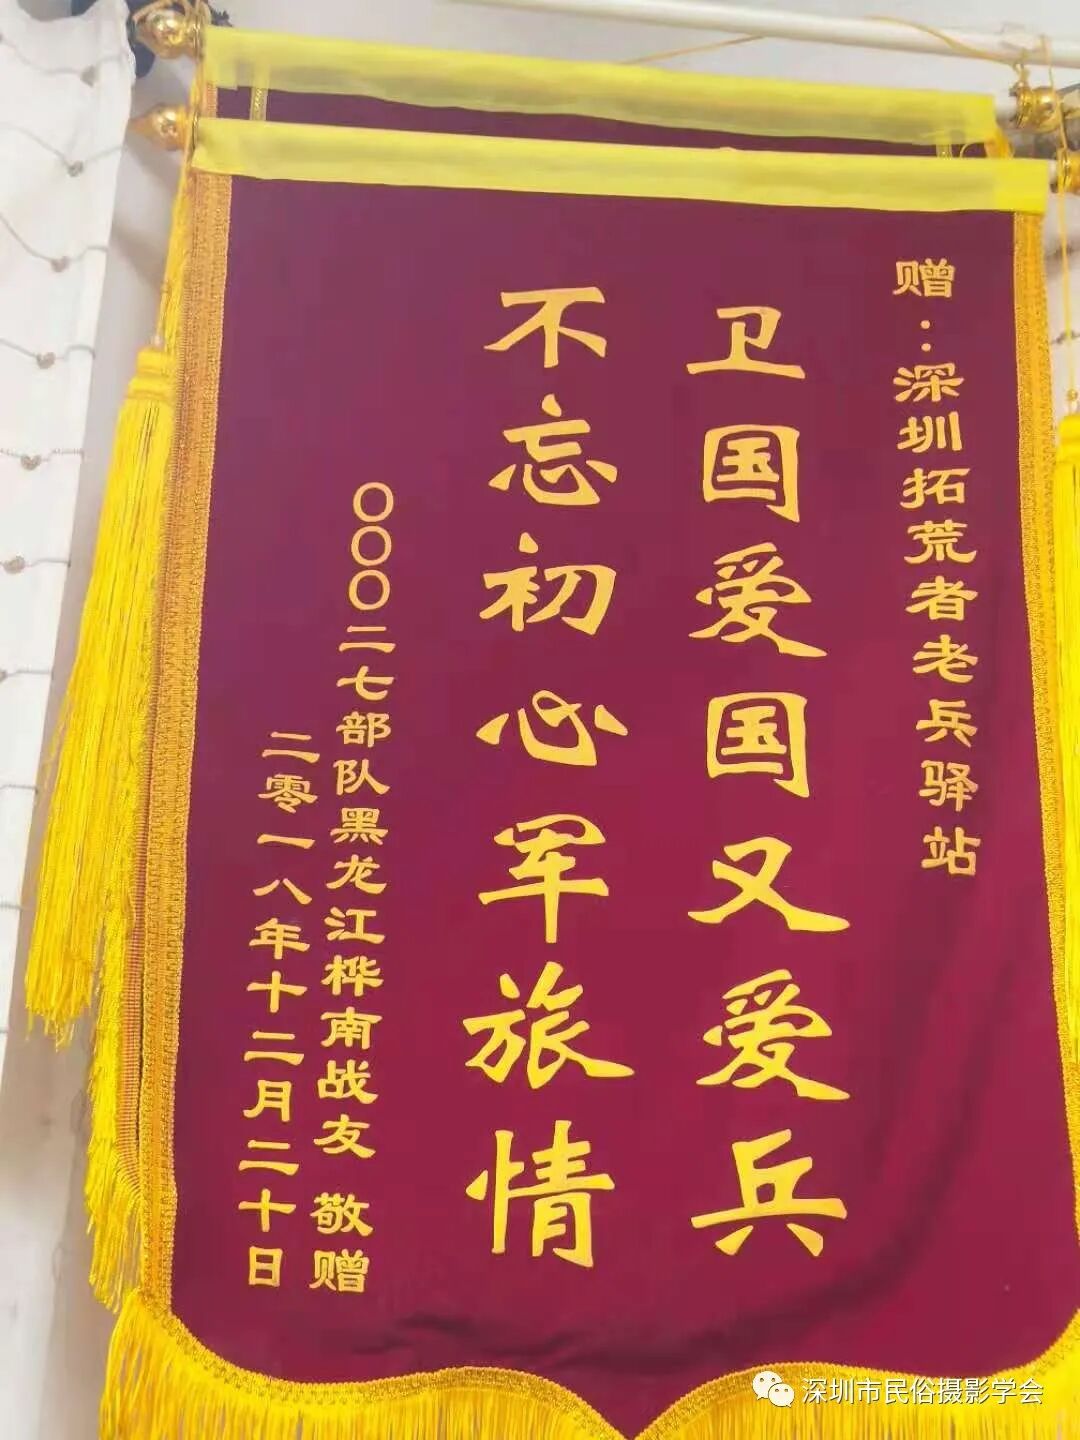 赠：深圳拓荒者老兵驿站
卫国爱国又爱兵
不忘初心军旅情
〇〇〇二七部队黑龙江桦南战友 敬赠
二零一八年十二月二十日
深圳市民俗摄影学会